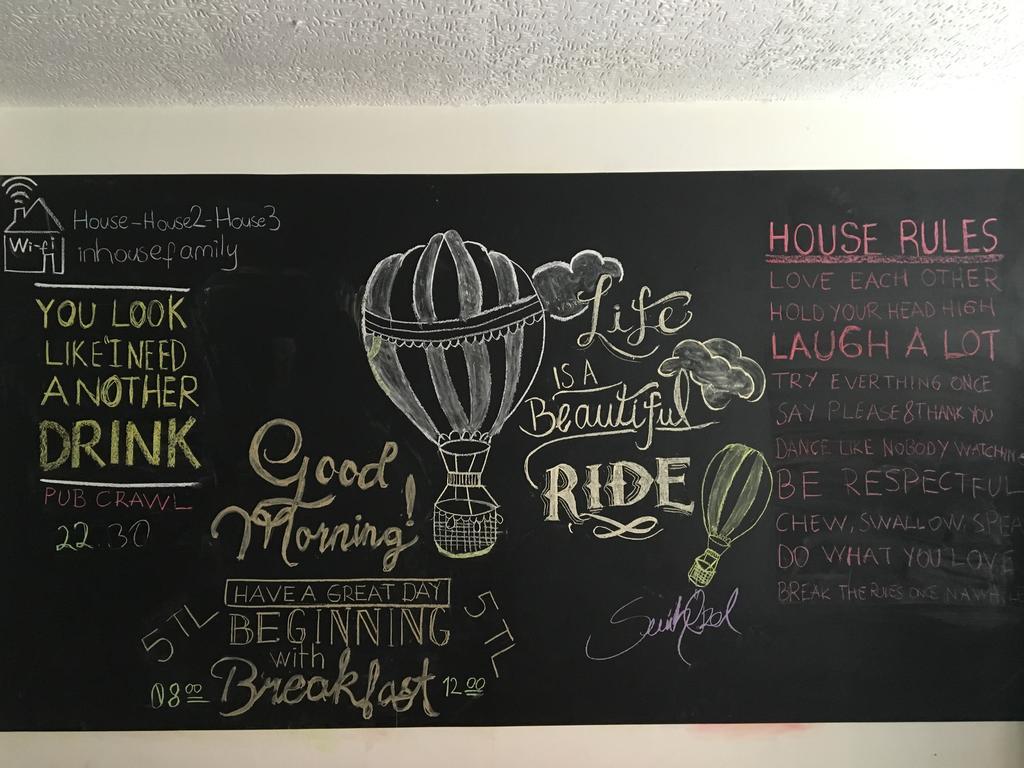 Wi-fi
House-House2-House3
inhousefamily
YOU LOOK
LIKE I NEED
ANOTHER
DRINK
PUB CRAWL
22.30
Good
Morning!
HAVE A GREAT DAY
BEGINNING
with
Breakfast
5 TL
5 TL
08⁰⁰
12⁰⁰
Life
IS A
Beautiful
RIDE
HOUSE RULES
LOVE EACH OTHER
HOLD YOUR HEAD HIGH
LAUGH A LOT
TRY EVERTHING ONCE
SAY PLEASE & THANK YOU
DANCE LIKE NOBODY WATCHIN
BE RESPECTFUL
CHEW, SWALLOW, SPEA
DO WHAT YOU LOVE
BREAK THE RULES ONCE N A WHILE